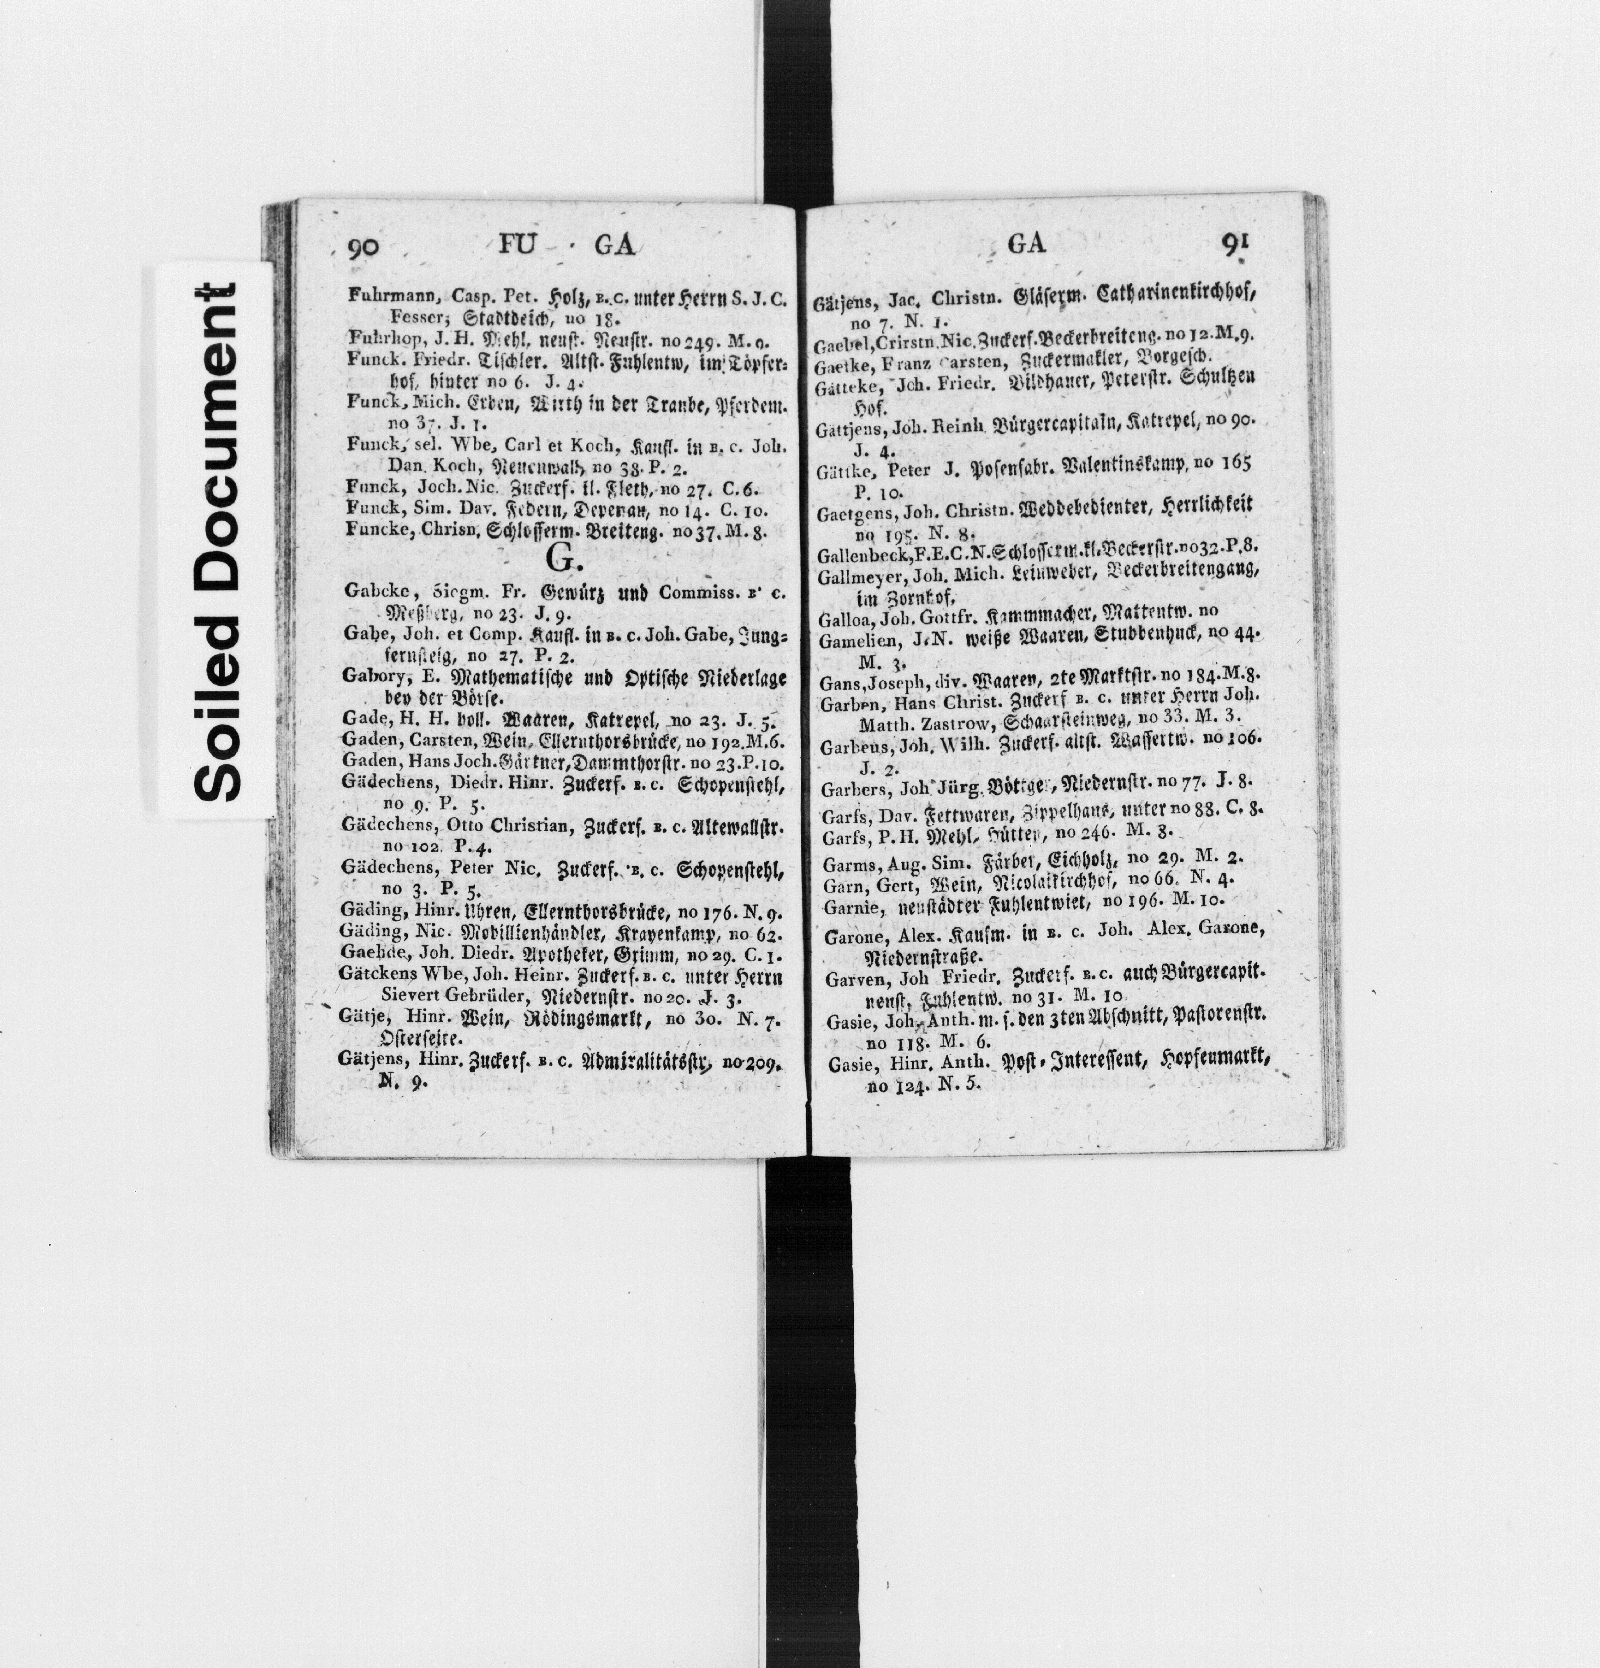 Soiled Document
90 FU · GA
Fuhrmann, Casp. Pet. Holz, B. C. unter Herrn S. J. C.
Fesser, Stadtdeich, no 18.
Fuhrhop, J. H. Mehl, neust. Neustr. no 249. M. 9.
Funck. Friedr. Tischler. Altst. Fuhlentw, im Töpfer-
hof, hinter no 6. J. 4.
Funck, Mich. Erben, Wirth in der Traube, Pferdem.
no 37. J. 1.
Funck, sel. Wbe, Carl et Koch, Kaufl. in B. C. Joh.
Dan. Koch, Neuenwall, no 38. P. 2.
Funck, Joch. Nic. Zuckerf. kl. Fleth, no 27. C. 6.
Funck, Sim. Dav. Federn, Depenau, no 14. C. 10.
Funcke, Chrisn. Schlosserm. Breiteng. no 37. M. 8.
G.
Gabcke, Siegm. Fr. Gewürz und Commiss. B. C.
Meßberg, no 23. J. 9.
Gabe, Joh. et Comp. Kaufl. in B. C. Joh. Gabe, Jung-
fernsteig, no 27. P. 2.
Gabory, E. Mathematische und Optische Niederlage
bey der Börse.
Gade, H. H. holl. Waaren, Katrepel, no 23. J. 5.
Gaden, Carsten, Wein, Ellernthorsbrücke, no 192. M. 6.
Gaden, Hans Joch. Gärtner, Dammthorstr. no 23. P. 10.
Gädechens, Diedr. Hinr. Zuckerf. B. C. Schopenstehl,
no 9. P. 5.
Gädechens, Otto Christian, Zuckerf. B. C. Altewallstr.
no 102. P. 4.
Gädechens, Peter Nic. Zuckerf. B. C. Schopenstehl,
no 3. P. 5.
Gäding, Hinr. Uhren, Ellernthorsbrücke, no 176. N. 9.
Gäding, Nic. Mobillienhändler, Krayenkamp, no 62.
Gaehde, Joh. Diedr. Apotheker, Grimm, no 29. C. 1.
Gätckens Wbe, Joh. Heinr. Zuckerf. B. C. unter Herrn
Sievert Gebrüder, Niedernstr. no 20. J. 3.
Gätje, Hinr. Wein, Rödingsmarkt, no 30. N. 7.
Osterseite.
Gätjens, Hinr. Zuckerf. B. C. Admiralitätsstr, no 209.
N. 9.
GA 91
Gätjens, Jac. Christn. Gläserm. Catharinenkirchhof,
no 7. N. 1.
Gaebel, Crirstn. Nic. Zuckerf. Beckerbreiteng. no 12. M. 9.
Gaetke, Franz Carsten, Zuckermakler, Borgesch.
Gätteke, Joh. Friedr. Bildhauer, Peterstr. Schultzen
Hof.
Gättjens, Joh. Reinh. Bürgercapitain, Katrepel, no 90.
J. 4.
Gättke, Peter J. Posenfabr. Valentinskamp, no 165
P. 10.
Gaetgens, Joh. Christn. Weddebedienter, Herrlichkeit
no 195. N. 8.
Gallenbeck, F. E. C. N. Schlosserm. kl. Beckerstr. no 32. P. 8.
Gallmeyer, Joh. Mich. Leinweber, Beckerbreitengang,
im Zornhof.
Galloa, Joh. Gottfr. Kammmacher, Mattentw. no
Gamelien, J. N. weiße Waaren, Stubbenhuck, no 44.
M. 3.
Gans, Joseph, div. Waaren, 2te Marktstr. no 184. M. 8.
Garben, Hans Christ. Zuckerf B. C. unter Herrn Joh.
Matth. Zastrow, Schaarsteinweg, no 33. M. 3.
Garbens, Joh. Wilh. Zuckerf. altst. Wassertw. no 106.
J. 2.
Garbers, Joh Jürg. Böttger, Niedernstr. no 77. J. 8.
Garfs, Dav. Fettwaren, Zippelhaus, unter no 88. C. 8.
Garfs, P. H. Mehl, Hütten, no 246. M. 8.
Garms, Aug. Sim. Färber, Eichholz, no 29. M. 2.
Garn, Gert, Wein, Nicolaikirchhof, no 66. N. 4.
Garnie, neustädter Fuhlentwiet, no 196. M. 10.
Garone, Alex. Kaufm. in B. C. Joh. Alex. Garone,
Niedernstraße.
Garven, Joh Friedr. Zuckerf. B. C. auch Bürgercapit.
neust, Fuhlentw. no 31. M. 10
Gasie, Joh. Anth. m. s. den 3ten Abschnitt, Pastorenstr.
no 118. M. 6.
Gasie, Hinr. Anth. Post-Interessent, Hopfenmarkt,
no 124. N. 5.